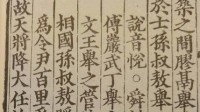 築之間膠鬲舉
於士孫叔敖舉
說音悅○舜
傅巖武丁舉
文王舉之管
相國孫叔敖
為令尹百里
故天將降大任